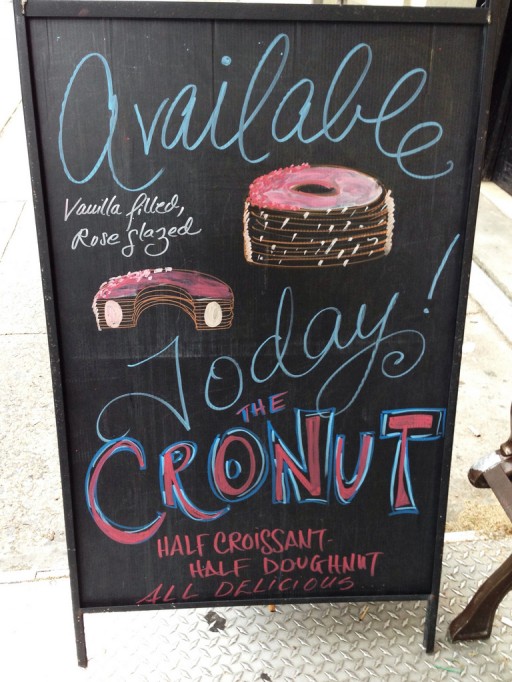 Available
Vanilla filled,
Rose glazed
Today!
THE
CRONUT
HALF CROISSANT-
HALF DOUGHNUT
ALL DELICIOUS